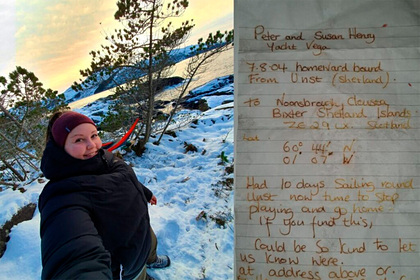 Peter and Susan Henry
Yacht Vega
7.8.04 homeward bound
From Unst (shetland).
to
Bixter Shetland Islands
Scotland
60° 44' N
01° 01' W
Had 10 days Sailing round
Unst now time to stop
playing and go home.
If you find this,
Could be so kind to let
us know were.
at address above or